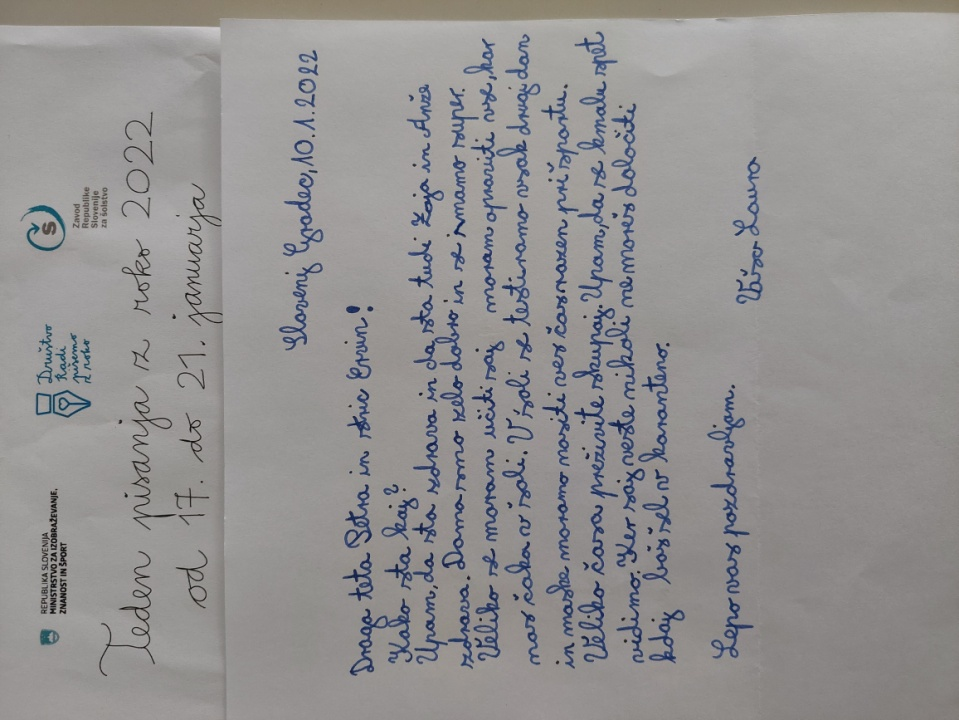 REPUBLIKA SLOVENIJA
MINISTRSTVO ZA IZOBRAŽEVANJE,
ZNANOST IN ŠPORT
Društvo
Radi
pišemo
z roko
S
Zavod
Republike
Slovenije
za šolstvo
Teden pisanja z roko 2022
od 17. do 21. januarja
Slovenj Gradec, 10.1.2022
Draga teta Petra in stric Ervin!
Kako sta kaj?
Upam, da sta zdrava in da sta tudi Zoja in Anže
zdrava. Doma smo zelo dobro in se imamo super.
Veliko se moram učiti saj moram opraviti vse, kar
nas čaka v šoli. V šoli se testiramo vsak drugi dan
in maske moramo nositi ves čas razen pri športu.
Veliko časa preživite skupaj. Upam, da se kmalu spet
vidimo. Ker saj veste nikoli ne moreš določiti
kdaj boš šel v karanteno.
Lepo vas pozdravljam.
Vaša Laura